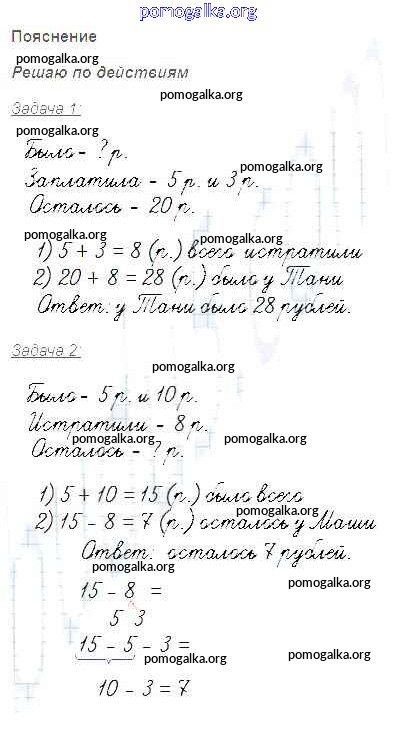 pomogalka.org
Пояснение
pomogalka.org
Решаю по действиям
pomogalka.org
Задача 1:
pomogalka.org
Было - ? р.
pomogalka.org
Заплатила - 5 р. и 3 р.
Осталось - 20 р.
pomogalka.org
pomogalka.org
1) 5 + 3 = 8 (р.) всего истратили
2) 20 + 8 = 28 (р.) было у Тани
Ответ: у Тани было 28 рублей.
Задача 2:
pomogalka.org
Было - 5 р. и 10 р.
Истратили - 8 р.
pomogalka.org pomogalka.org
Осталось - ? р.
1) 5 + 10 = 15 (р.) было всего
pomogalka.org
2) 15 - 8 = 7 (р.) осталось у Маши
Ответ: осталось 7 рублей.
pomogalka.org
pomogalka.org
15 - 8 =
5 3
15 - 5 - 3 =
pomogalka.org pomogalka.org
10 - 3 = 7